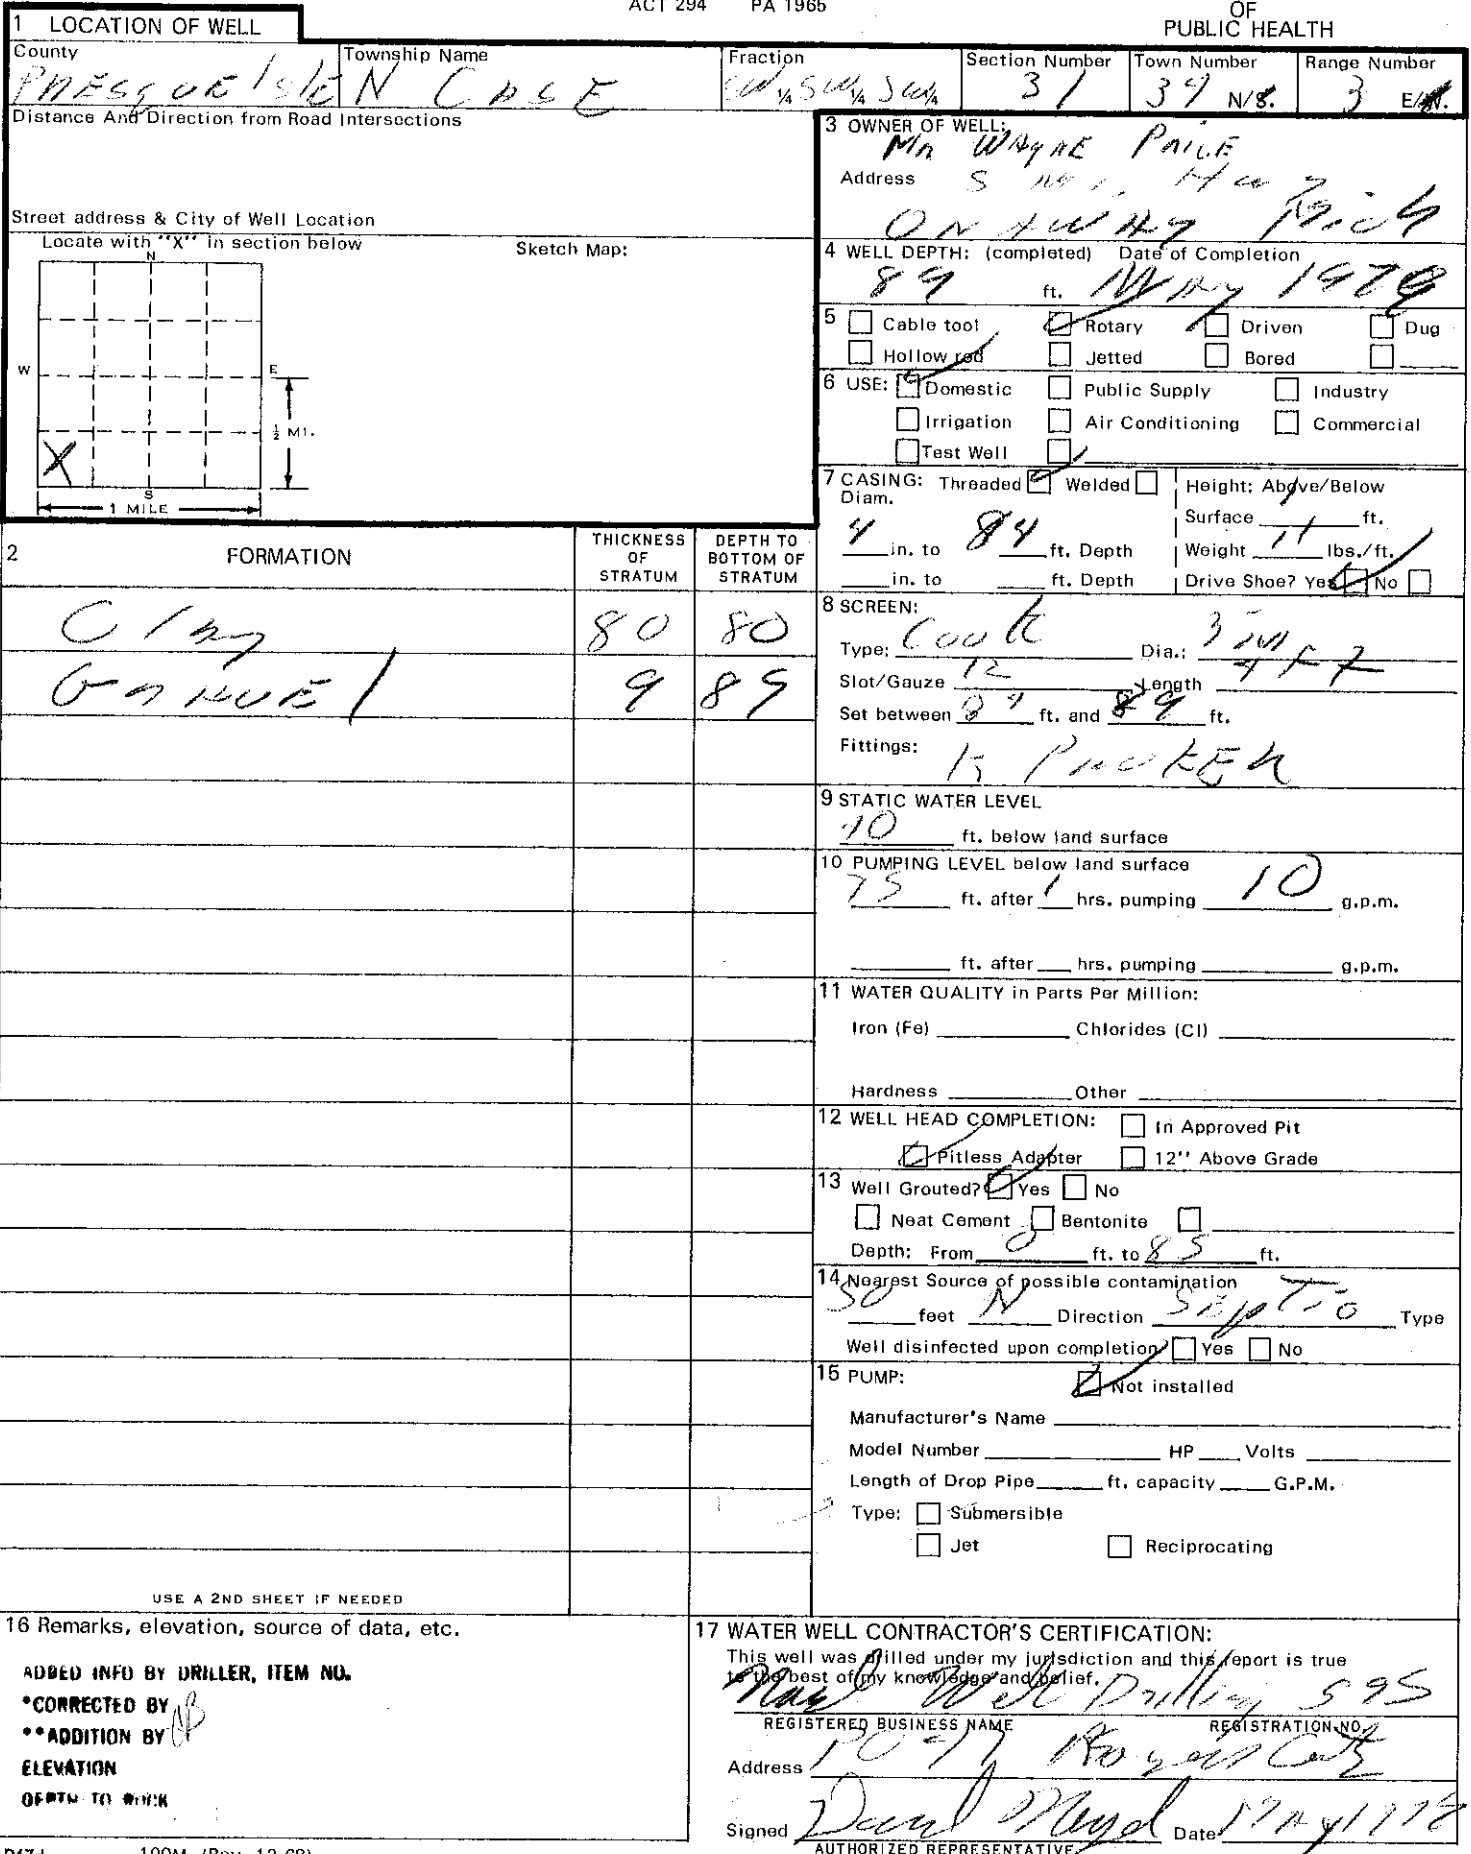 ACT 294 PA 1965
OF
PUBLIC HEALTH
1 LOCATION OF WELL
County
PRESQUE ISLE
Township Name
N CASE
Fraction
SW ¼ SW ¼ SW ¼
Section Number
31
Town Number
34 N/S.
Range Number
3 E/W.
Distance And Direction from Road Intersections
Street address & City of Well Location
Locate with "X" in section below
Sketch Map:
N
W
E
X
½ MI.
S
1 MILE
2 FORMATION
THICKNESS OF STRATUM
DEPTH TO BOTTOM OF STRATUM
Clay 80 80
GRAVEL 9 89
USE A 2ND SHEET IF NEEDED
3 OWNER OF WELL:
Mr WAYNE PRICE
Address
ONAWAY Mich
4 WELL DEPTH: (completed) Date of Completion
89 ft. May 1978
5 Cable tool Rotary Driven Dug
Hollow rod Jetted Bored
6 USE: Domestic Public Supply Industry
Irrigation Air Conditioning Commercial
Test Well
7 CASING: Threaded Welded
Diam.
4 in. to 84 ft. Depth
in. to ft. Depth
Height: Above/Below
Surface 1 ft.
Weight 11 lbs./ft.
Drive Shoe? Yes No
8 SCREEN:
Type: Cook Dia.: 3 IN
Slot/Gauze 12 Length 4 FT
Set between 84 ft. and 89 ft.
Fittings:
K PACKER
9 STATIC WATER LEVEL
10 ft. below land surface
10 PUMPING LEVEL below land surface
75 ft. after 1 hrs. pumping 10 g.p.m.
ft. after hrs. pumping g.p.m.
11 WATER QUALITY in Parts Per Million:
Iron (Fe) Chlorides (Cl)
Hardness Other
12 WELL HEAD COMPLETION: In Approved Pit
Pitless Adapter 12" Above Grade
13 Well Grouted? Yes No
Neat Cement Bentonite
Depth: From 0 ft. to 85 ft.
14 Nearest Source of possible contamination
50 feet N Direction Septic Type
Well disinfected upon completion? Yes No
15 PUMP: Not installed
Manufacturer's Name
Model Number HP Volts
Length of Drop Pipe ft. capacity G.P.M.
Type: Submersible
Jet Reciprocating
16 Remarks, elevation, source of data, etc.
ADDED INFO BY DRILLER, ITEM NO.
*CORRECTED BY
**ADDITION BY
ELEVATION
DEPTH TO ROCK
17 WATER WELL CONTRACTOR'S CERTIFICATION:
This well was drilled under my jurisdiction and this report is true
to the best of my knowledge and belief.
Well Drilling 595
REGISTERED BUSINESS NAME REGISTRATION NO.
Address Rogers City
Signed David Date May 1978
AUTHORIZED REPRESENTATIVE
100M (Rev. 12-68)